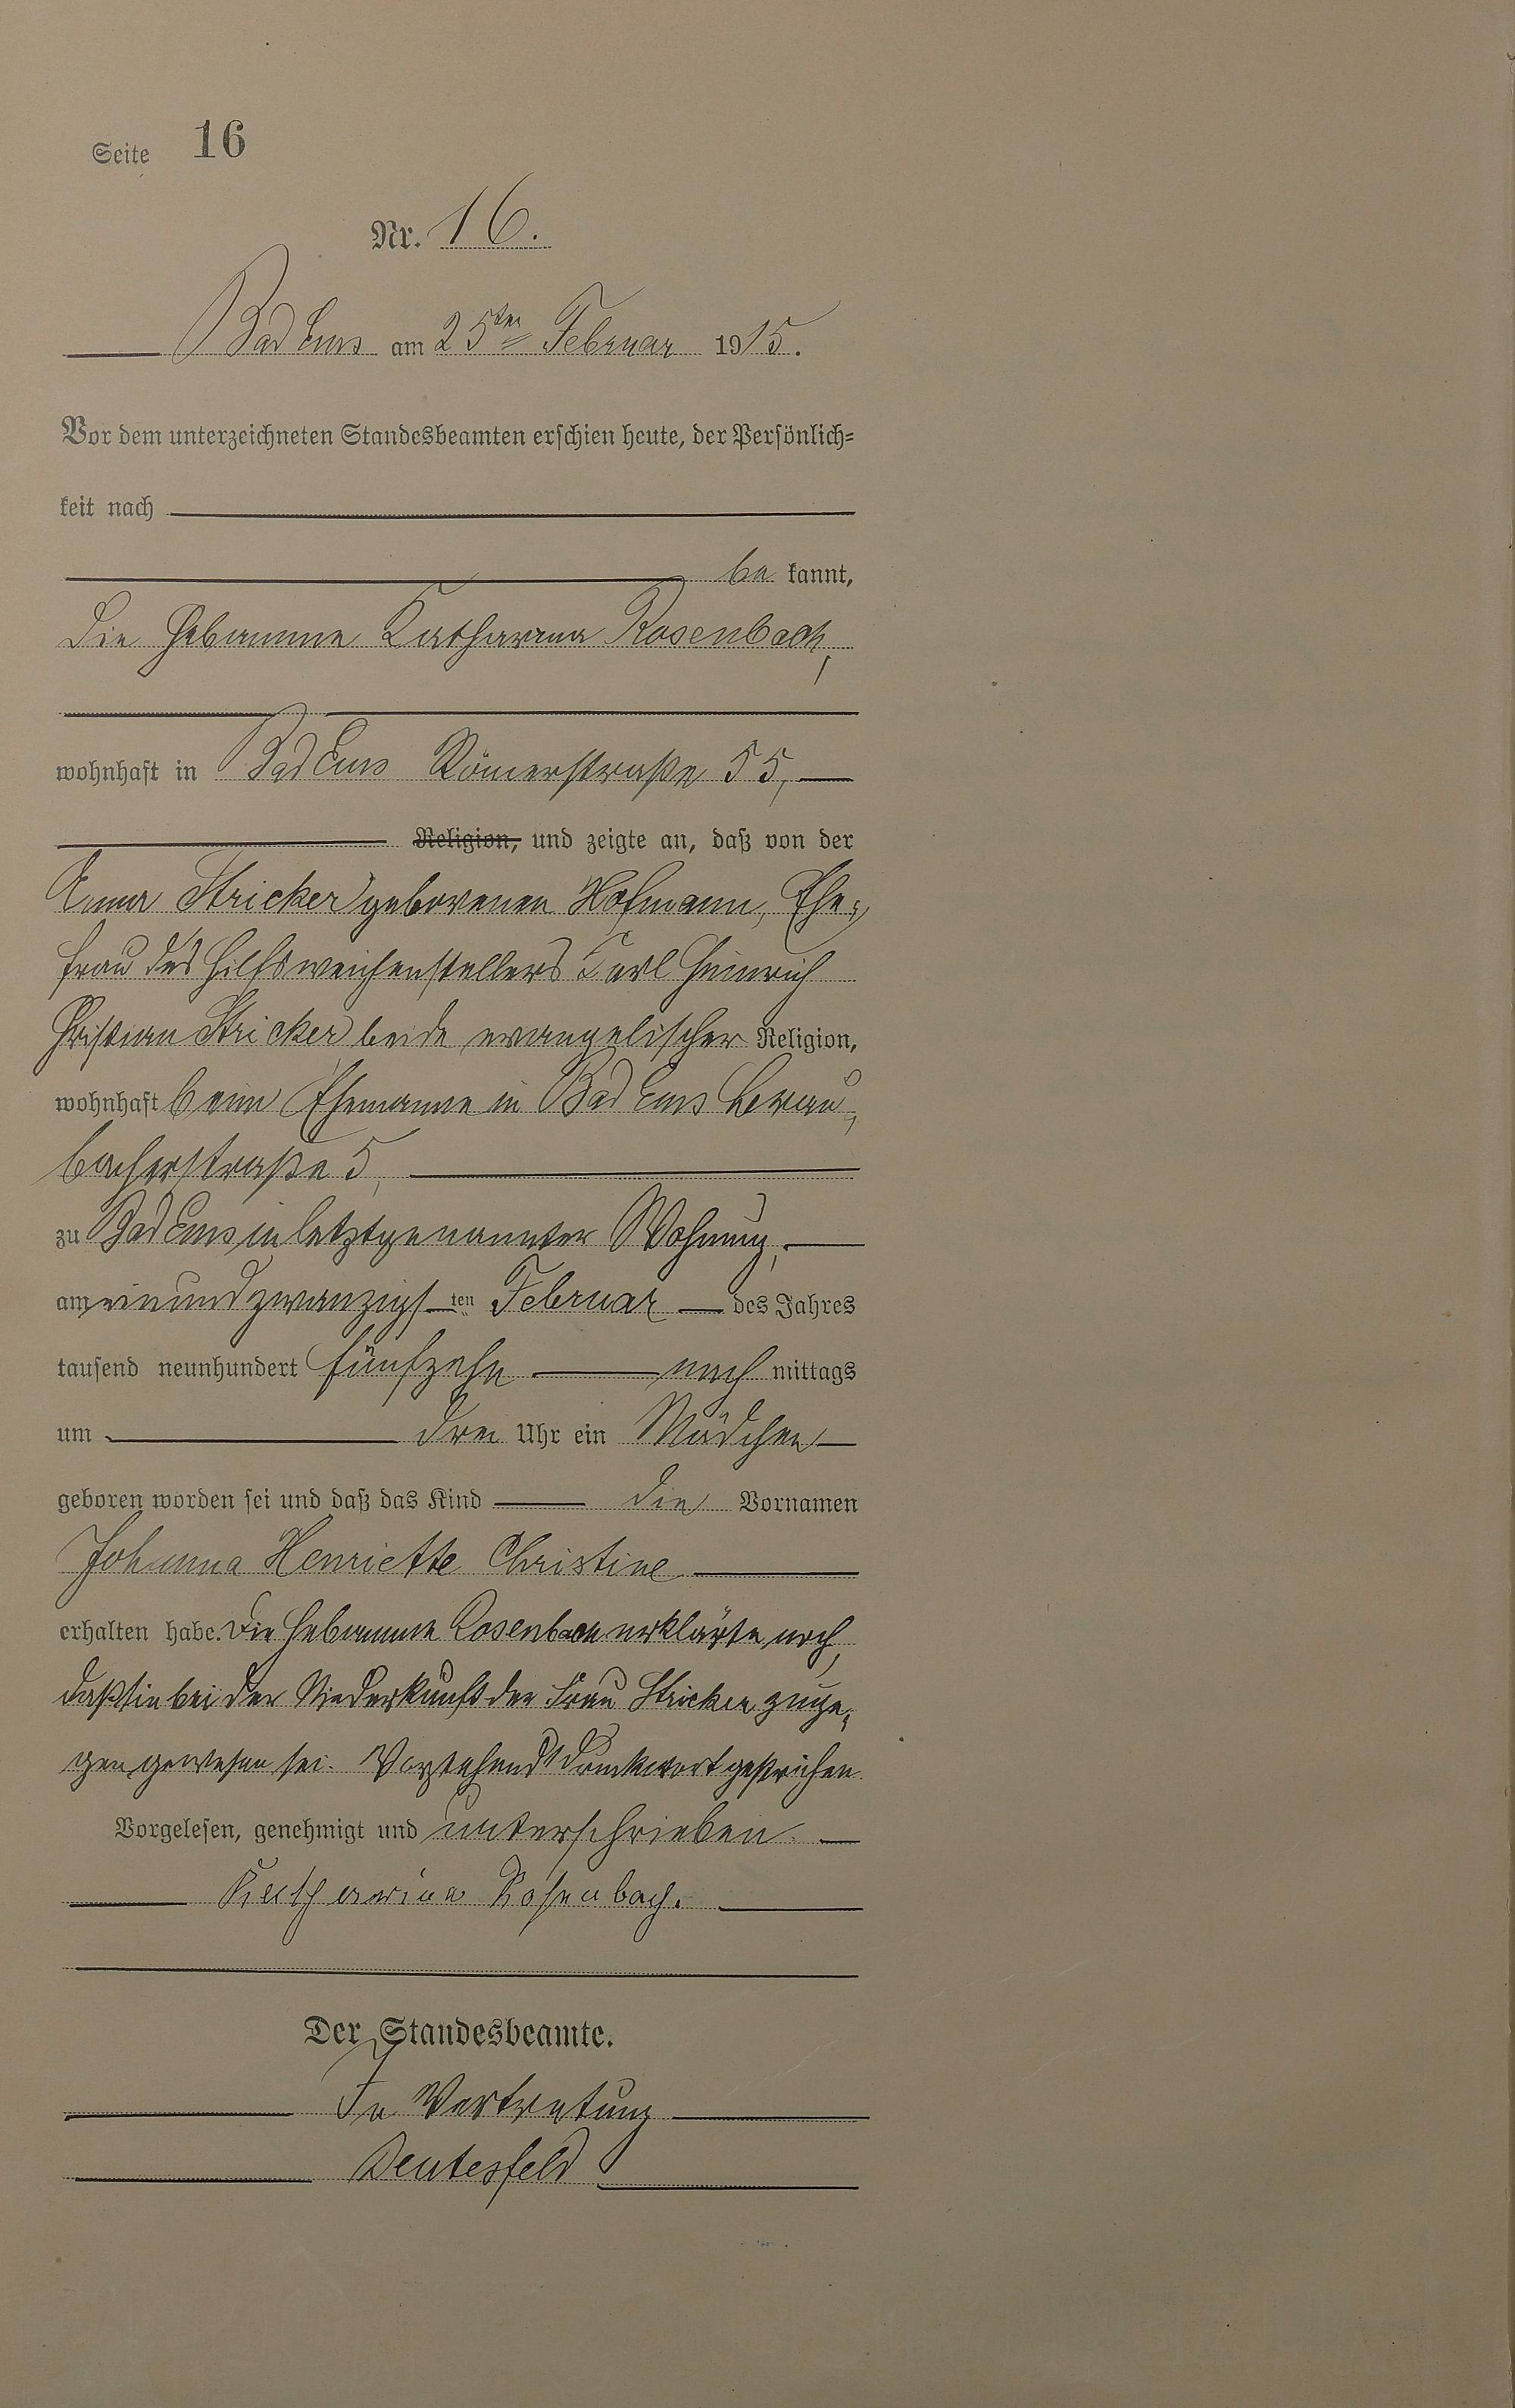 Seite 16
Nr. 16.
Bad Ems am 25ten Februar 1915.
Vor dem unterzeichneten Standesbeamten erschien heute, der Persönlich=
keit nach
be kannt,
die Hebamme Katharina Rosenbach,
wohnhaft in Bad Ems Römerstraße 55,
Religion, und zeigte an, daß von der
Anna Stricker geborenen Hofmann, Ehe=
frau des Hilfsweichenstellers Karl Heinrich
Christian Stricker beide evangelischer Religion,
wohnhaft beim Ehemanne in Bad Ems Arau=
bacherstraße 5,
zu Bad Ems in letztgenannter Wohnung,
am einundzwanzigs ten Februar des Jahres
tausend neunhundert fünfzehn nach mittags
um drei Uhr ein Mädchen
geboren worden sei und daß das Kind die Vornamen
Johanna Henriette Christine
erhalten habe. Die Hebamme Rosenbach erklärte noch,
daß sie bei der Niederkunft der Frau Stricker zuge=
gen gewesen sei. Vorstehend 1 Druckwort gestrichen.
Vorgelesen, genehmigt und unterschrieben.
Katharina Rosenbach.
Der Standesbeamte.
In Vertretung
Deutesfeld